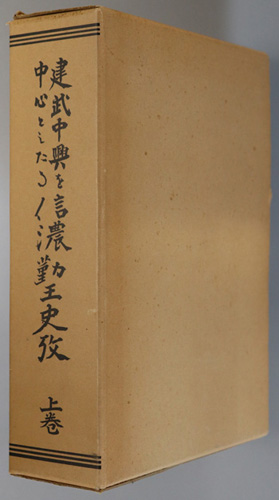 建武中興を
中心としたる
信濃勤王史攷
上巻